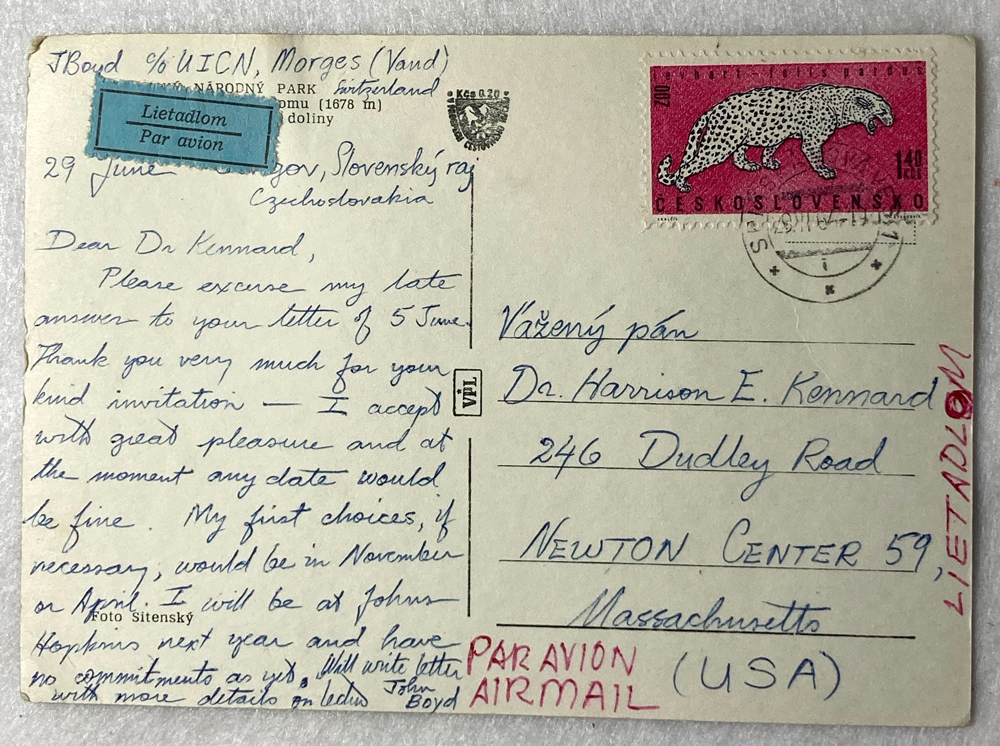 JBoyd c/o UICN, Morges (Vaud)
Switzerland
NÁRODNÝ PARK
omu (1678 m)
doliny
Lietadlom
Par avion
Kčs 0.20
29 June gov, Slovenský raj
Czechoslovakia
Dear Dr Kennard,
Please excuse my late
answer to your letter of 5 June.
Thank you very much for your
kind invitation — I accept
with great pleasure and at
the moment any date would
be fine. My first choices, if
necessary, would be in November
or April. I will be at Johns
Foto Sitenský
Hopkins next year and have
no commitments as yet. Will write letter
with more details on John
Boyd
VPL
levhart - felis pardus
ZOO
1,40
Kčs
ČESKOSLOVENSKO
Vážený pán
Dr. Harrison E. Kennard
246 Dudley Road
NEWTON CENTER 59,
Massachusetts
(USA)
PAR AVION
AIRMAIL
LIETADLOM